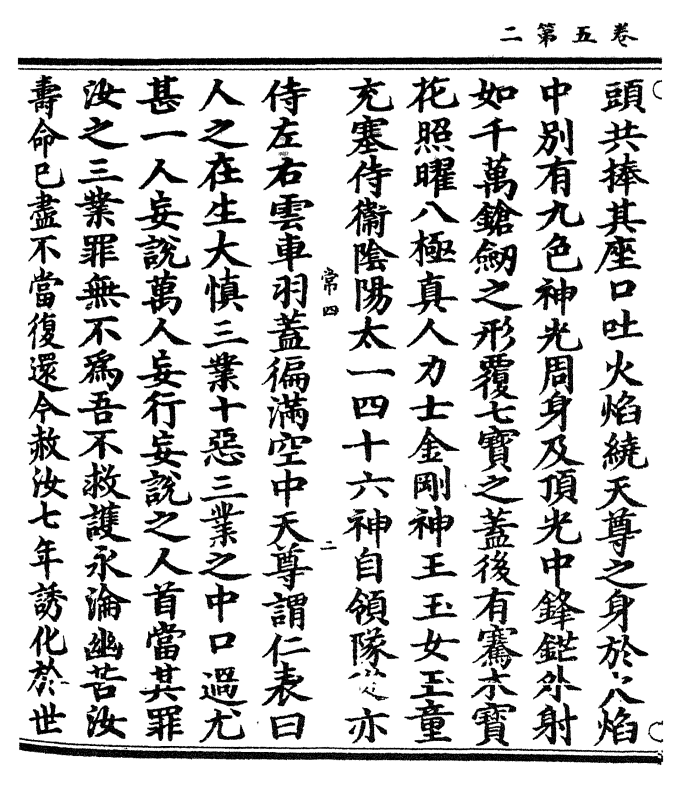 卷五第二
頭共捧其座口吐火焰繞天尊之身於火焰
中別有九色神光周身及頂光中鋒鋩外射
如千萬鎗劒之形覆七寶之蓋後有騫木寶
花照曜八極真人力士金剛神王玉女玉童
充塞侍衞陰陽太一四十六神自領隊從亦
常四
二
侍左右雲車羽蓋徧滿空中天尊謂仁表曰
人之在生大慎三業十惡三業之中口過尤
甚一人妄說萬人妄行妄說之人首當其罪
汝之三業罪無不爲吾不救護永淪幽苦汝
壽命已盡不當復還今赦汝七年誘化於世